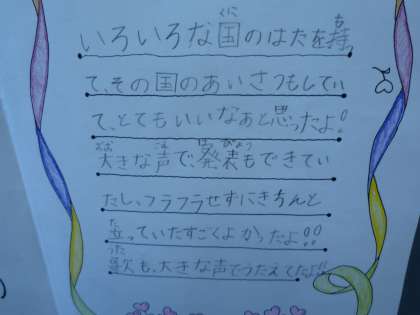 いろいろな国のはたを持っ
て、その国のあいさつもしてい
て、とてもいいなぁと思ったよ!
大きな声で、発表もできてい
たし、フラフラせずにきちんと
立っていたすごくよかったよ!!
歌も、大きな声でうたえてたよ!!